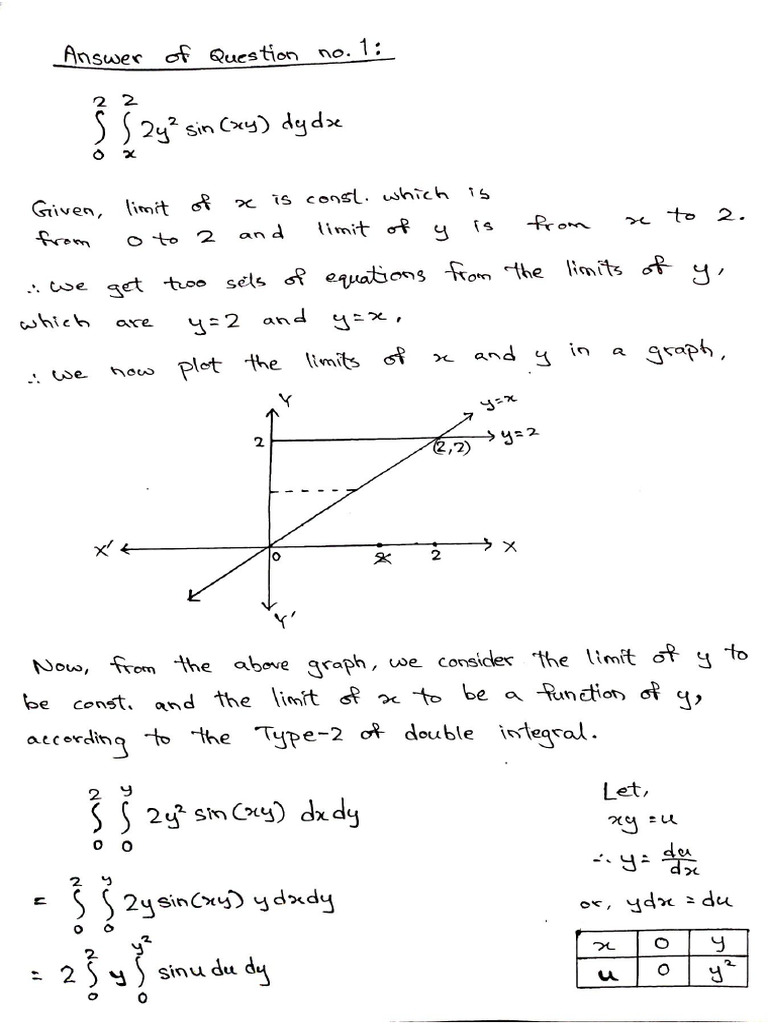 Answer of Question no. 1:
∫₀² ∫ₓ² 2y² sin(xy) dydx
Given, limit of x is const. which is
from 0 to 2 and limit of y is from x to 2.
∴ we get two sets of equations from the limits of y,
which are y=2 and y=x,
∴ we now plot the limits of x and y in a graph,
Y
y=x
2
(2,2)
y=2
X'
0
2
X
Y'
Now, from the above graph, we consider the limit of y to
be const. and the limit of x to be a function of y,
according to the Type-2 of double integral.
∫₀² ∫₀ʸ 2y² sin(xy) dxdy
= ∫₀² ∫₀ʸ 2y sin(xy) y dxdy
= 2 ∫₀² y ∫₀^{y²} sinu du dy
Let,
xy = u
∴ y = du/dx
or, ydx = du
x 0 y
u 0 y²